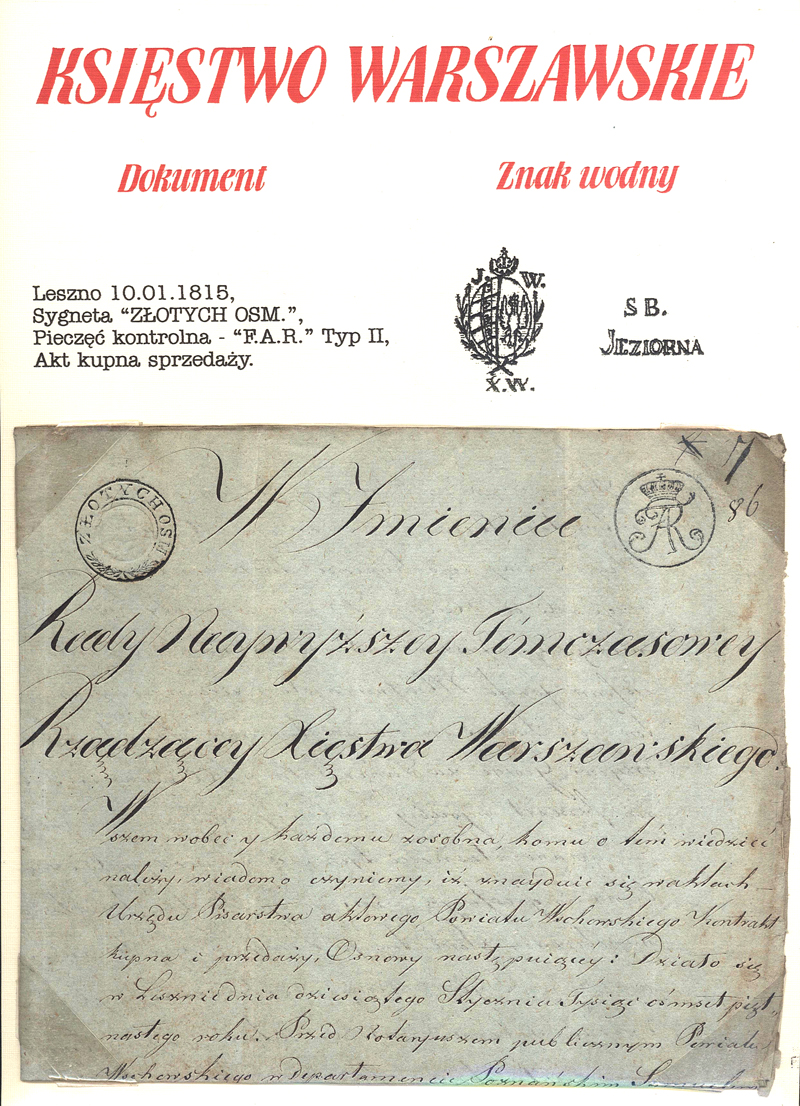 KSIĘSTWO WARSZAWSKIE
Dokument
Znak wodny
Leszno 10.01.1815,
Sygneta “ZŁOTYCH OSM.”,
Pieczęć kontrolna - “F.A.R.” Typ II,
Akt kupna sprzedaży.
J. W.
X.W.
S B.
JEZIORNA
17
86
ZŁOTYCH OSM
FAR
W Imieniu
Rady Naywyższey Témczasowey
Rządzącey Xięstwa Warszawskiego.
Wszem wobec y każdemu zosobna, komu o tém wiedzieć
należy, wiadomo czyniemy, iż znayduie się w aktach
Urzędu Pisarstwa aktowego Powiatu Wschowskiego Kontrakt
kupna i przedaży, Osnowy następuiącéy: Działo się
w Lesznie dnia dziesiątego Stycznia Tysiąc ośmset pięt„
nastego roku. Przed Notaryuszem publicznym Powiatu
Wschowskiego w Departamencie Poznańskim